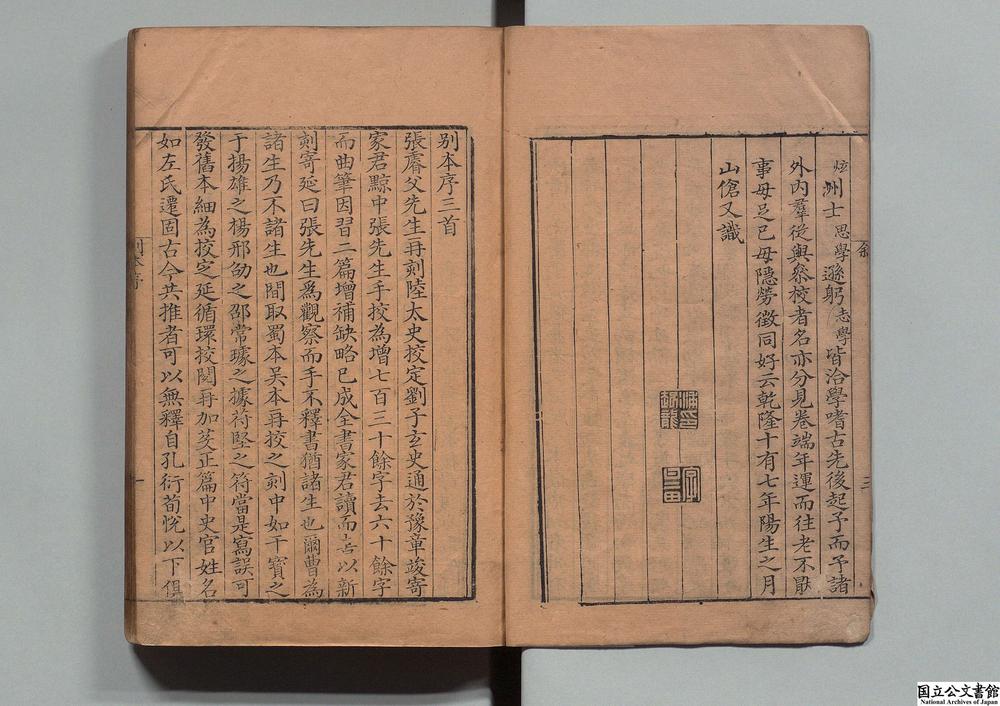 炫洲士思學遜躬志學皆洽學嗜古先後起予而予諸
外內羣從與叅校者名亦分見卷端年運而往老不猒
事毋足已毋隱勞徵同好云乾隆十有七年陽生之月
山傖又識
三
别本序三首
張睿父先生再刻陸太史挍定劉子玄史通於豫章竣寄
家君黔中張先生手挍為增七百三十餘字去六十餘字
而曲筆因習二篇增補缺略已成全書家君讀而善以新
刻寄延曰張先生爲觀察而手不釋書猶諸生也爾曹為
諸生乃不諸生也閒取蜀本吴本再挍之刻中如干寳之
于揚雄之楊邢劭之邵常璩之據苻堅之符當是寫誤可
發舊本細為挍定延循環挍閱再加芟正篇中史官姓名
如左氏遷固古今共推者可以無釋自孔衍荀恱以下俱
别本序
一
国立公文書館
National Archives of Japan